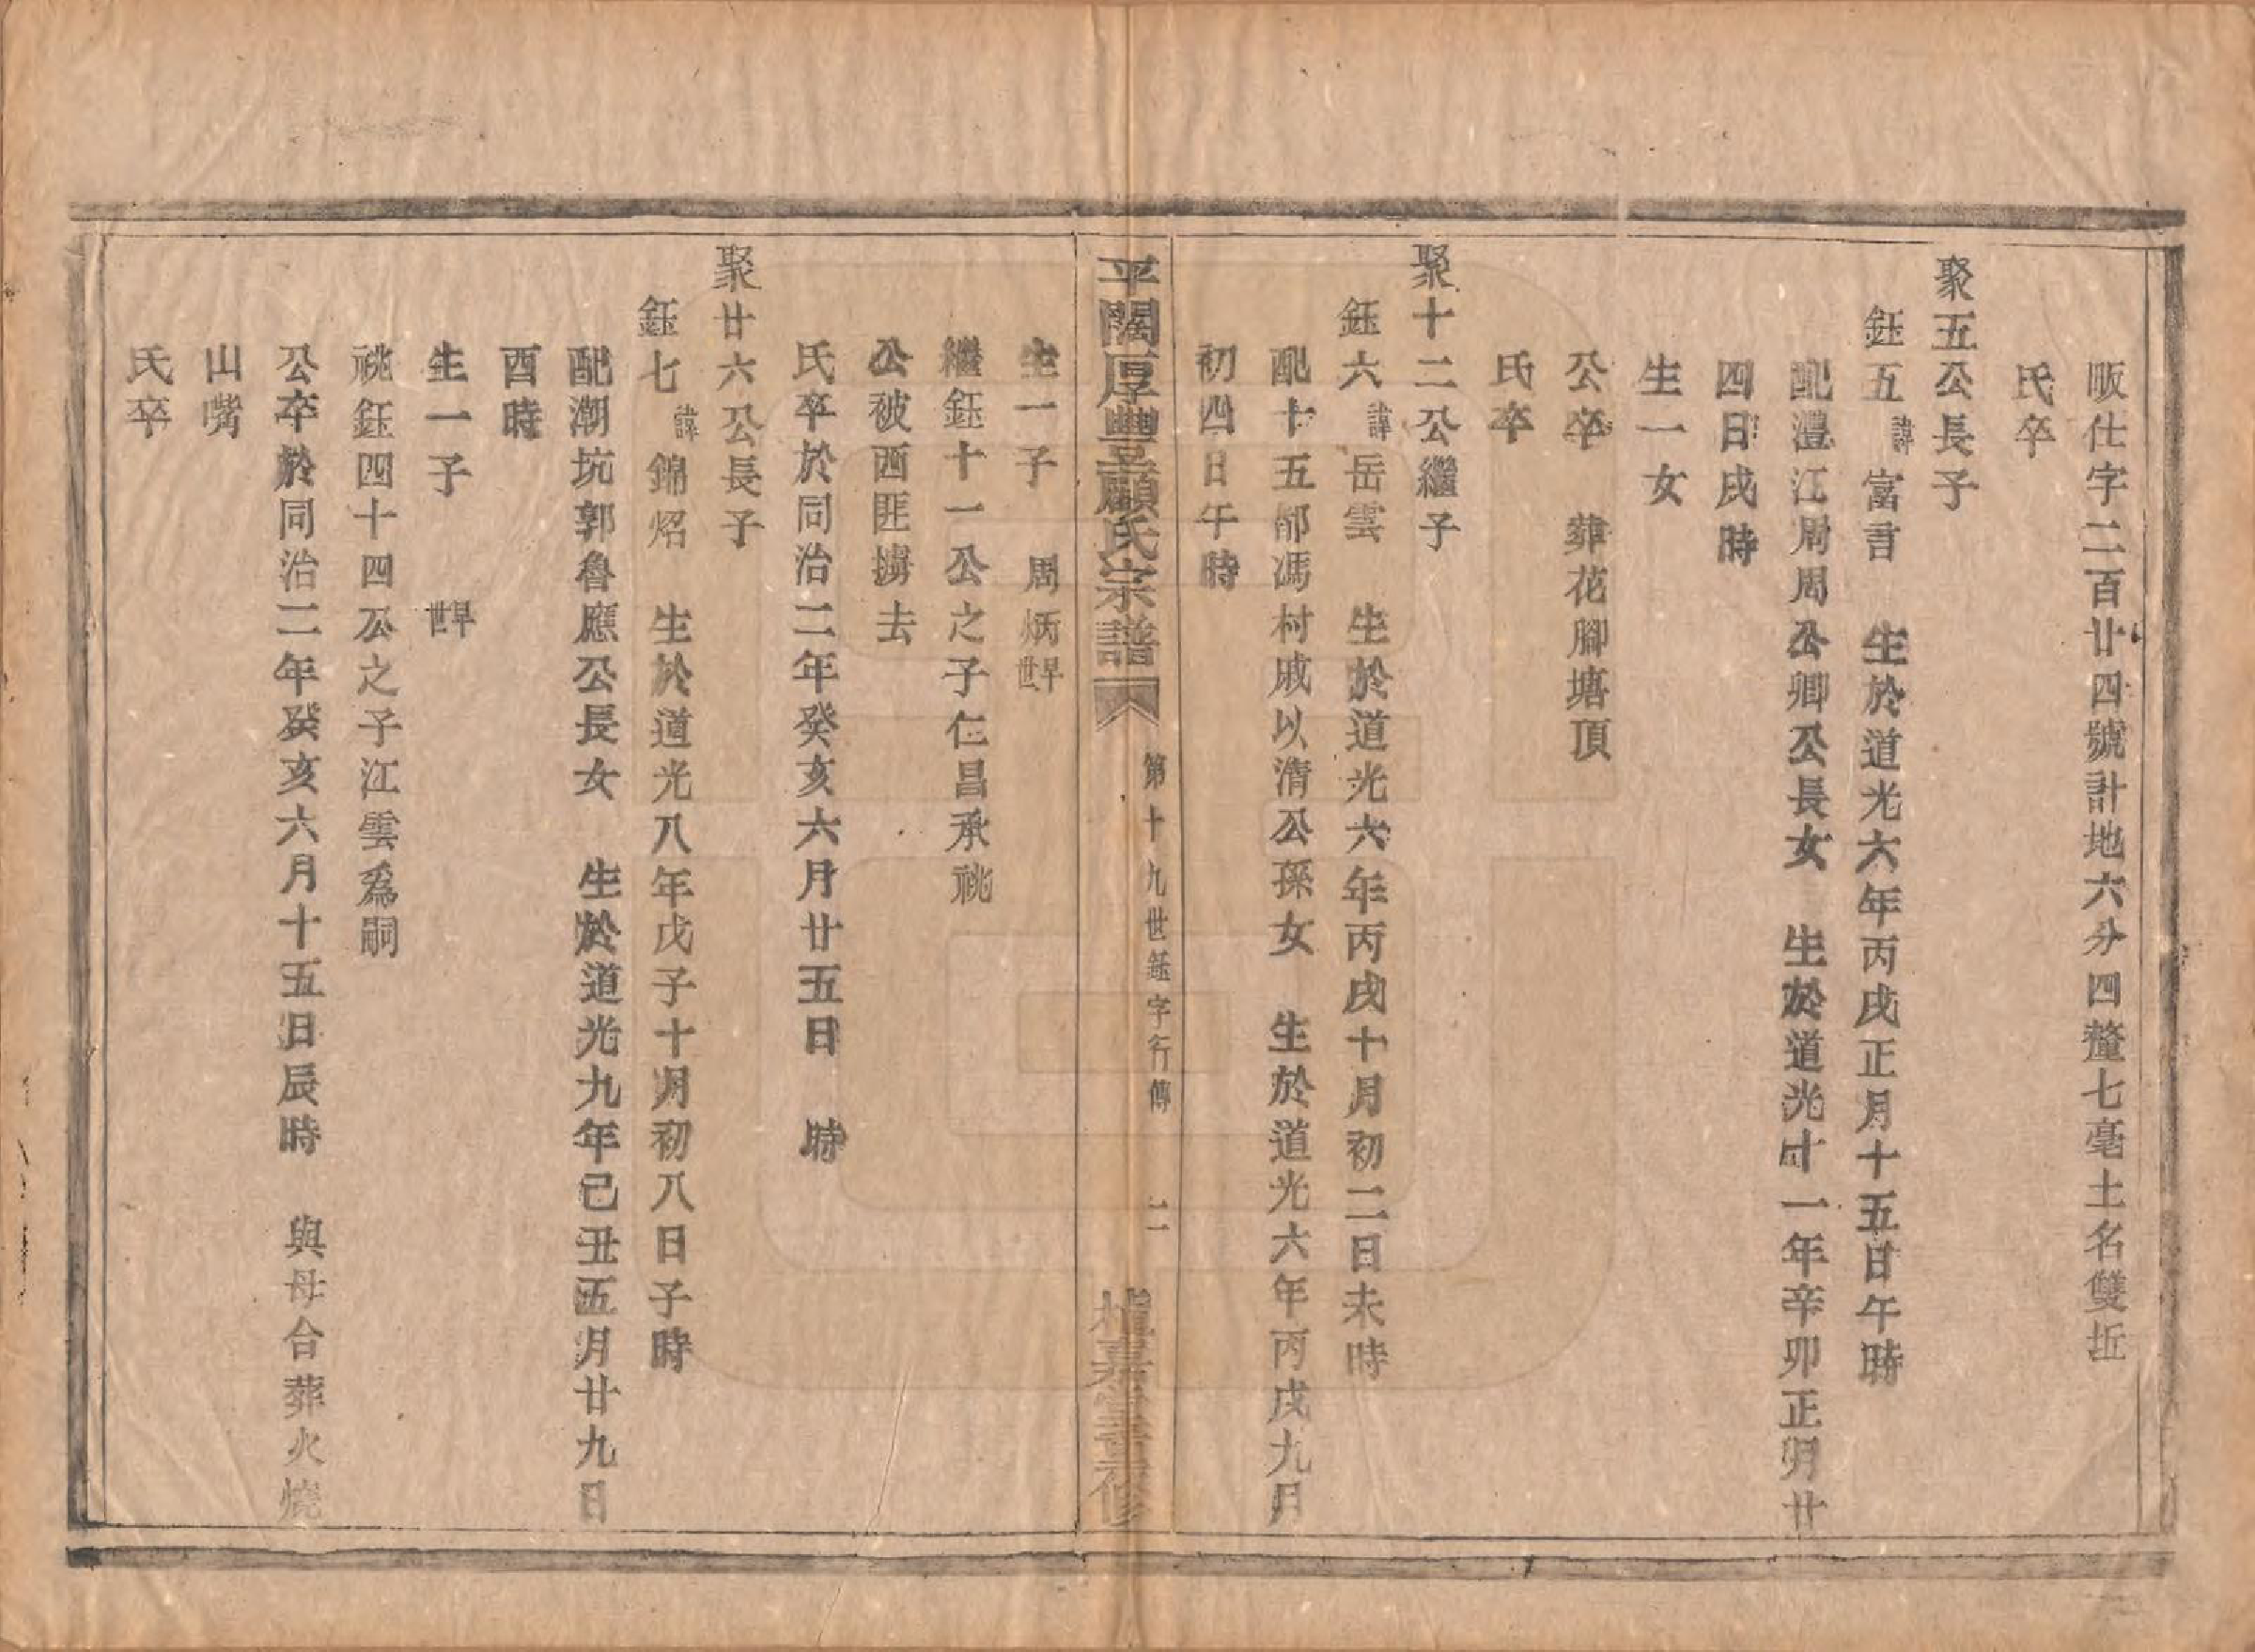 畈仕字二百廿四號計地六分四釐七毫土名雙坵
氏卒
聚五公長子
鈺五 諱 富言 生於道光六年丙戌正月十五日午時
配灃江周周公卿公長女 生於道光十一年辛卯正月廿
四日戌時
生一女
公卒 葬花腳塘頂
氏卒
聚十二公繼子
鈺六 諱 岳雲 生於道光六年丙戌十月初二日未時
配十五都馮村戚以清公孫女 生於道光六年丙戌九月
初四日午時
平闊厚豐顧氏宗譜 第十九世鈺字行傳 二 修
生一子 周炳 早世
繼鈺十一公之子仁昌承祧
公被西匪擄去
氏卒於同治二年癸亥六月廿五日 時
聚廿六公長子
鈺七 諱 錦炤 生於道光八年戊子十月初八日子時
配潮坑郭魯應公長女 生於道光九年己丑五月廿九日
酉時
生一子 早世
祧鈺四十四公之子江雲為嗣
公卒於同治二年癸亥六月十五日辰時 與母合葬火燒
山嘴
氏卒